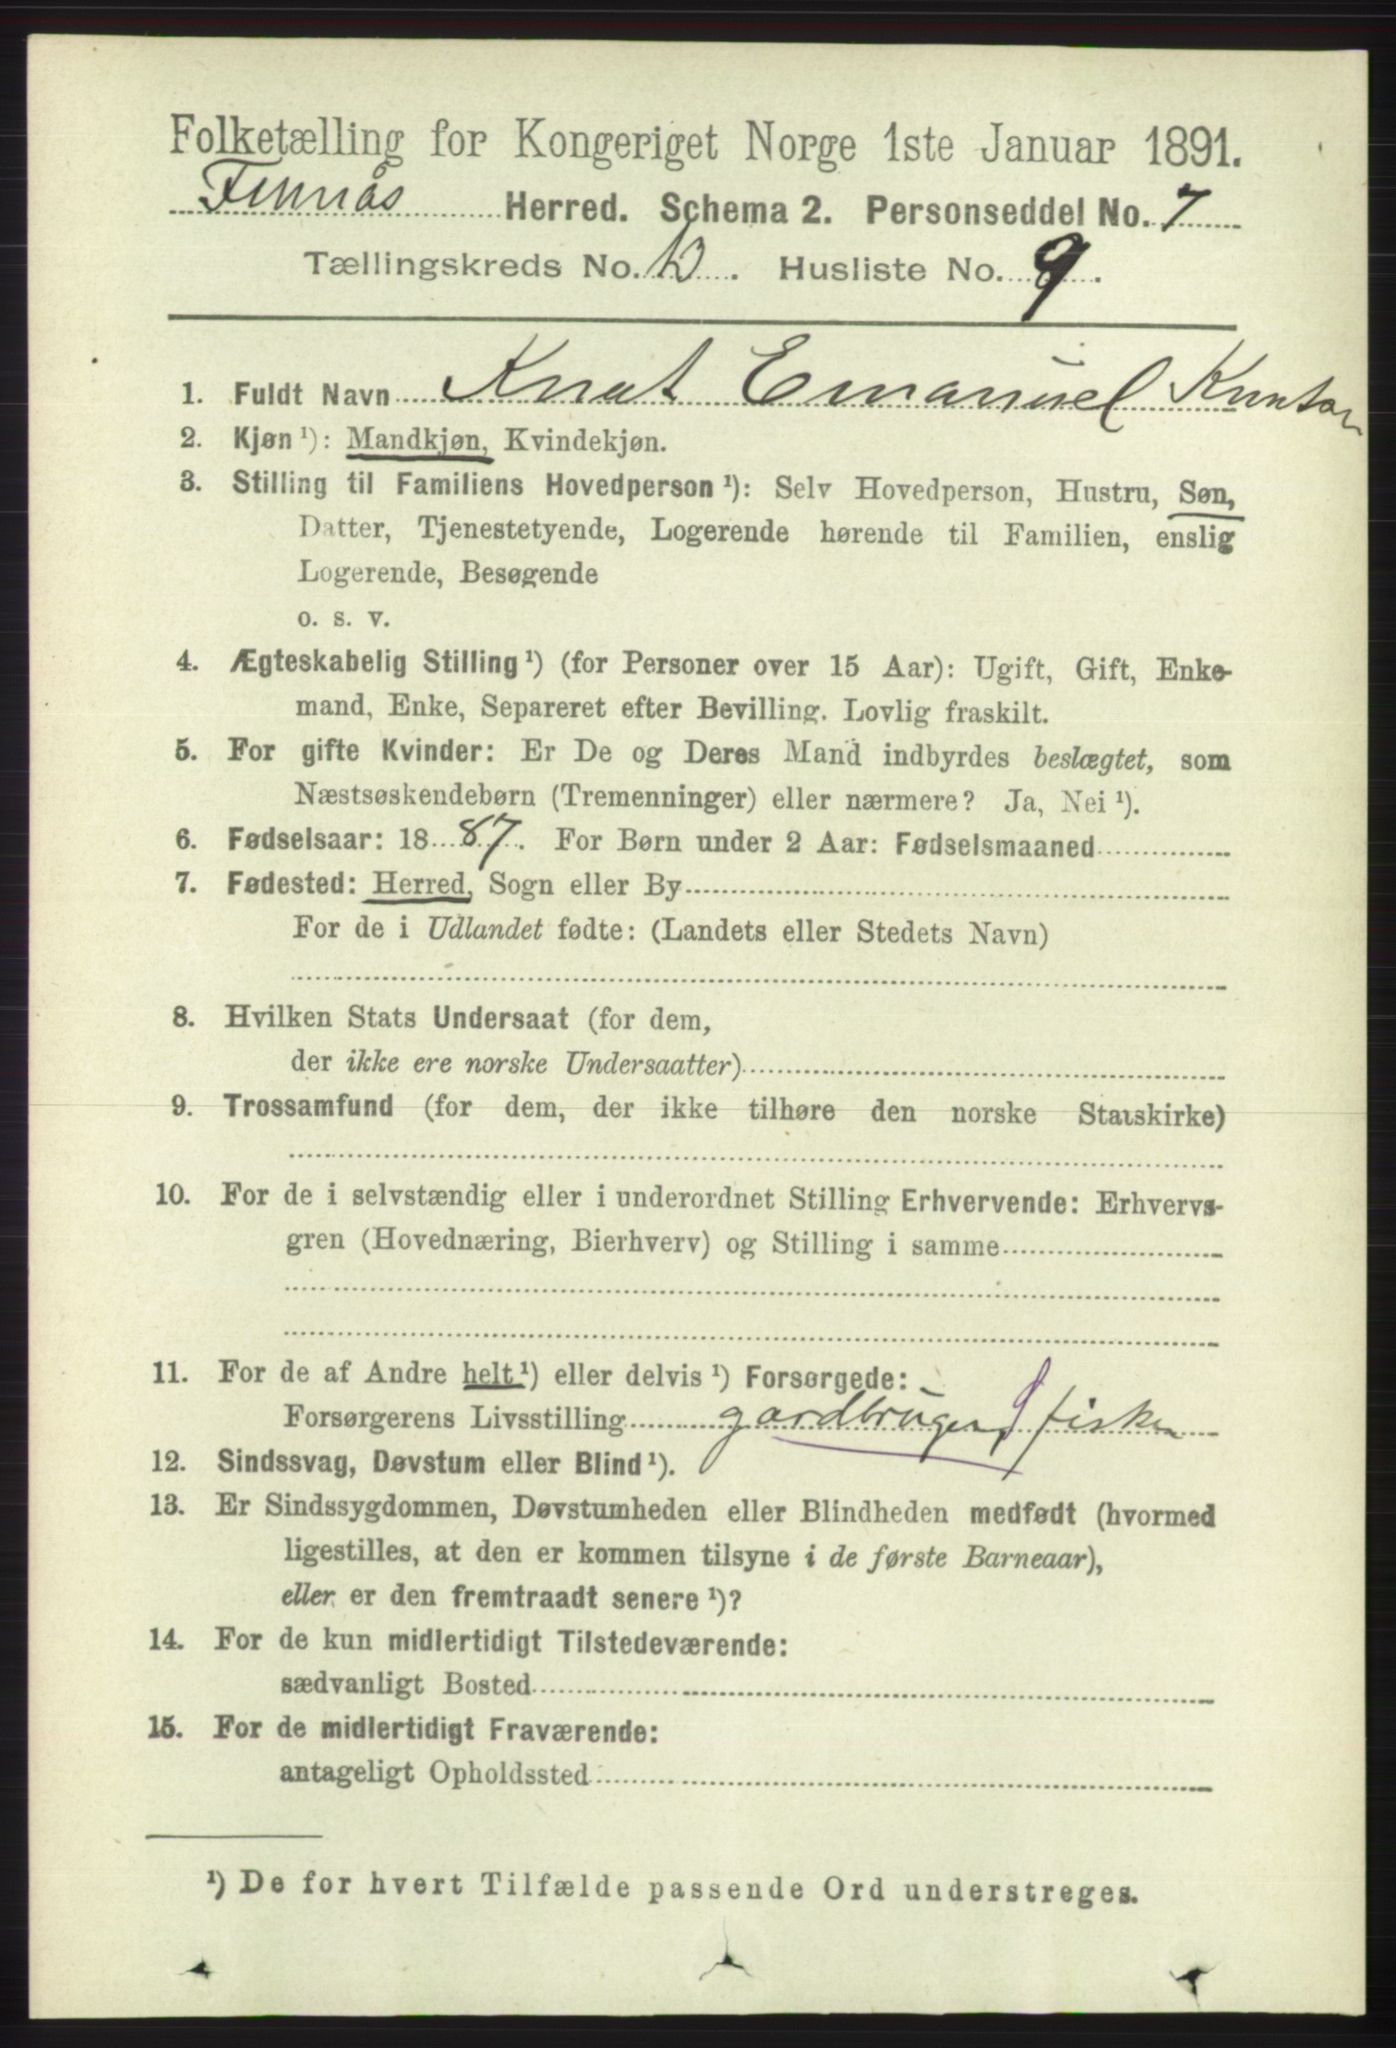 Folketælling for Kongeriget Norge 1ste Januar 1891.
Finnås Herred. Schema 2. Personseddel No. 7
Tællingskreds No. . Husliste No. 9.
1. Fuldt Navn Knut Emanuel Knutsen
2. Kjøn ¹): Mandkjøn, Kvindekjøn.
3. Stilling til Familiens Hovedperson ¹): Selv Hovedperson, Hustru, Søn,
Datter, Tjenestetyende, Logerende hørende til Familien, enslig
Logerende, Besøgende
o. s. v.
4. Ægteskabelig Stilling ¹) (for Personer over 15 Aar): Ugift, Gift, Enke-
mand, Enke, Separeret efter Bevilling. Lovlig fraskilt.
5. For gifte Kvinder: Er De og Deres Mand indbyrdes beslægtet, som
Næstsøskendebørn (Tremenninger) eller nærmere? Ja, Nei ¹).
6. Fødselsaar: 1887. For Børn under 2 Aar: Fødselsmaaned
7. Fødested: Herred, Sogn eller By
For de i Udlandet fødte: (Landets eller Stedets Navn)
8. Hvilken Stats Undersaat (for dem,
der ikke ere norske Undersaatter)
9. Trossamfund (for dem, der ikke tilhøre den norske Statskirke)
10. For de i selvstændig eller i underordnet Stilling Erhvervende: Erhvervs-
gren (Hovednæring, Bierhverv) og Stilling i samme
11. For de af Andre helt ¹) eller delvis ¹) Forsørgede:
Forsørgerens Livsstilling gardbruger, fisker
12. Sindssvag, Døvstum eller Blind ¹).
13. Er Sindssygdommen, Døvstumheden eller Blindheden medfødt (hvormed
ligestilles, at den er kommen tilsyne i de første Barneaar),
eller er den fremtraadt senere ¹)?
14. For de kun midlertidigt Tilstedeværende:
sædvanligt Bosted
15. For de midlertidigt Fraværende:
antageligt Opholdssted
¹) De for hvert Tilfælde passende Ord understreges.